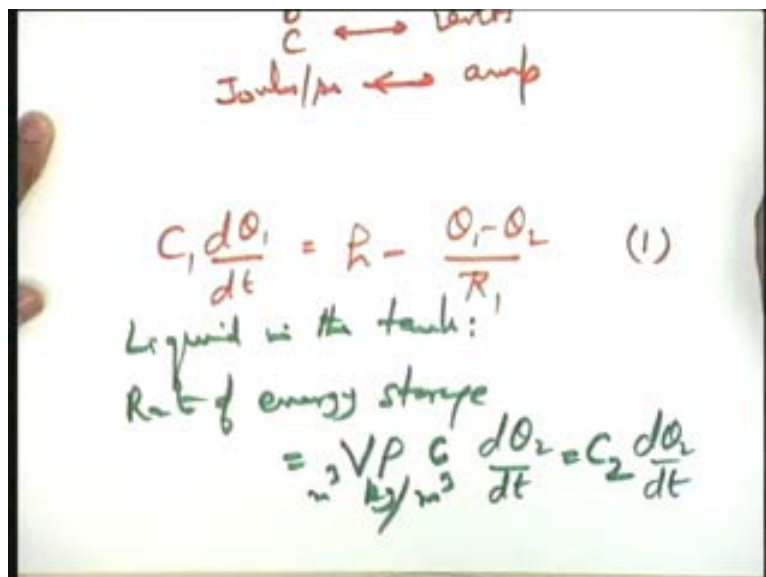 °C ↔
Joules/sec ↔ amp
C₁ dθ₁/dt = h - (θ₁-θ₂)/R₁ (1)
Liquid in the tank:
Rate of energy storage
= Vρ c dθ₂/dt = C₂ dθ₂/dt
m³ kg/m³